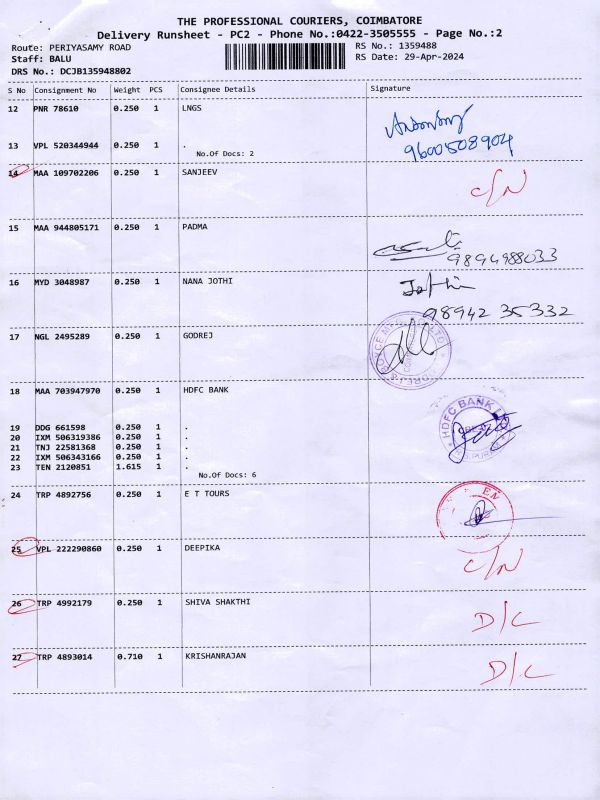 THE PROFESSIONAL COURIERS, COIMBATORE
Delivery Runsheet - PC2 - Phone No.:0422-3505555 - Page No.:2
Route: PERIYASAMY ROAD
RS No.: 1359488
Staff: BALU
RS Date: 29-Apr-2024
DRS No.: DCJB135948802
S No Consignment No Weight PCS Consignee Details Signature
12 PNR 78610 0.250 1 LNGS
13 VPL 520344944 0.250 1 .
No.Of Docs: 2
9600508904
14 MAA 109702206 0.250 1 SANJEEV
C/N
15 MAA 944805171 0.250 1 PADMA
9894988033
16 MYD 3048987 0.250 1 NANA JOTHI
Jothi
98942 35332
17 NGL 2495289 0.250 1 GODREJ
18 MAA 703947970 0.250 1 HDFC BANK
HDFC BANK
19 DDG 661598 0.250 1 .
20 IXM 506319386 0.250 1 .
21 TNJ 22581368 0.250 1 .
22 IXM 506343166 0.250 1 .
23 TEN 2120851 1.615 1 .
No.Of Docs: 6
24 TRP 4892756 0.250 1 E T TOURS
25 VPL 222290860 0.250 1 DEEPIKA
C/N
26 TRP 4992179 0.250 1 SHIVA SHAKTHI
D/C
27 TRP 4893014 0.710 1 KRISHANRAJAN
D/C